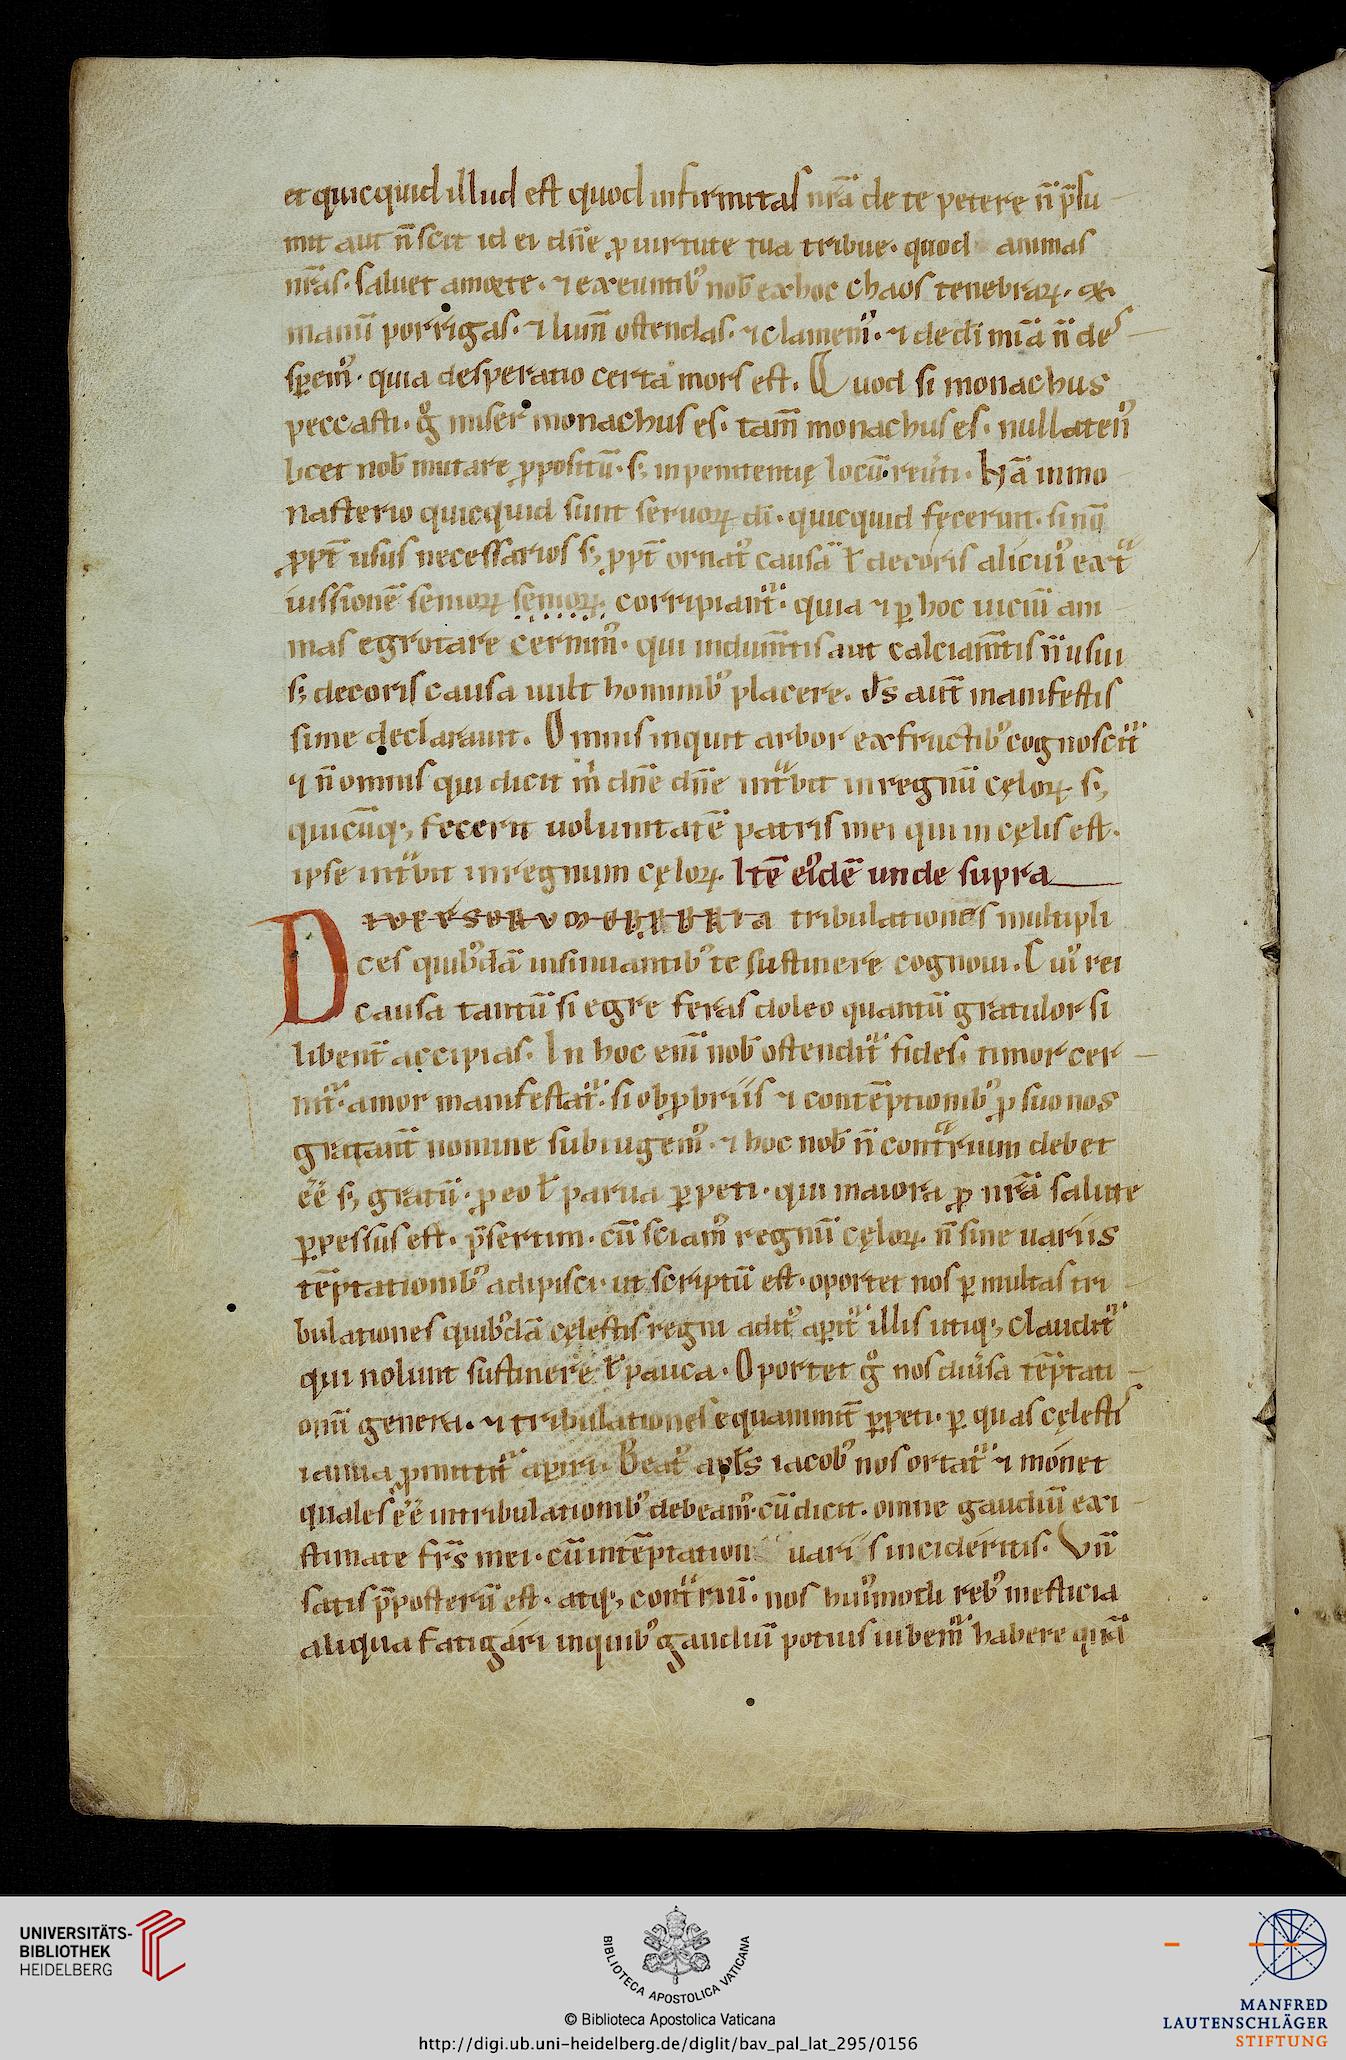 et quicquid illud est quod infirmitas nr̄a de te petere n̄ p̄su
mit aut n̄ scit id ei dn̄e ꝓ uirtute tua tribue. quod animas
nr̄as. saluet a morte. ⁊ exeuntib᷒ nob̄ ex hoc chaos tenebraꝝ.
manū porrigas. ⁊ lum̄ ostendas. ⁊ clamem᷒. ⁊ de dī mīa n̄ de
sꝑem᷒. quia desperatio certa mors est. Quod si monachus
peccasti. g° miser monachus es. tam̄ monachus es. nullaten᷒
licet nob̄ mutare ꝓpositū. s; in penitentię locū reūti. Nā in mo
nasterio quicquid sunt seruoꝝ dī. quicquid fecerunt. si nō
ꝓpt̄ usus necessarios s; ꝓpt̄ ornat᷒ causā ł decoris alicui᷒ extͣ
iussionē senioꝝ senioꝝ. corripiant᷑. quia ⁊ ꝑ hoc uiciū ani
mas egrotare cernim᷒. qui indum̄tis aut calciam̄tis n̄ usui
s; decoris causa uult hominib᷒ placere. Ds̄ aut̄ manifestis
sime declarauit. Omnis inquit arbor ex fructib᷒ cognoscit᷑
⁊ n̄ omnis qui dicit m dn̄e dn̄e intͣbit in regnū cęloꝝ s;
quicūq; fecerit uoluntatē patris mei qui in cęlis est.
ipse intͣbit in regnum cęloꝝ. Itē ei᷒dē unde supra
DIVERSORVM tribulationes multipli
ces quib᷒dā insinuantib᷒ te sustinere cognoui. Cui᷒ rei
causa tantū si egre feras doleo quantū gratulor si
libent̄ accipias. In hoc enī nob̄ ostendit᷑ fides. timor cer
nit᷑. amor manifestat᷑. si obꝓbriis ⁊ contēptionib᷒ ꝓ suo nos
gratant̄ nomine subiugem᷒. ⁊ hoc nob̄ n̄ contͣrium debet
ēē s; gratū. ꝓ eo ł parua ꝑpeti. qui maiora ꝓ nr̄a salute
ꝑpessus est. p̄sertim. cū sciam᷒ regnū cęloꝝ. n̄ sine uariis
tēptationib᷒ adipisci. ut scriptū est. oportet nos ꝑ multas tri
bulationes quib᷒dā cęlestis regni adit᷒ aꝑit᷑ illis utiq; claudit᷑
qui nolunt sustinere ł pauca. Oportet g° nos diūsa tēptati
onū genera. ⁊ tribulationes equanimit̄ ꝑpeti. ꝑ quas cęlestis
ianua ꝓmittit᷑ aꝑiri. Beat᷒ apls̄ iacob᷒ nos ortat᷑ ⁊ monet
quales ēē in tribulationib᷒ debeam᷒. cū dicit. omne gaudiū exi
stimate frs̄ mei. cū in tēptation uariis incideritis. Vn̄
satis p̄posterū est. atq; contͣriū. nos hui᷒modi reb᷒ mesticia
aliqua fatigari in quib᷒ gaudiū potius iubem᷑ habere quā
UNIVERSITÄTS-
BIBLIOTHEK
HEIDELBERG
BIBLIOTECA APOSTOLICA VATICANA
© Biblioteca Apostolica Vaticana
http://digi.ub.uni-heidelberg.de/diglit/bav_pal_lat_295/0156
MANFRED
LAUTENSCHLÄGER
STIFTUNG